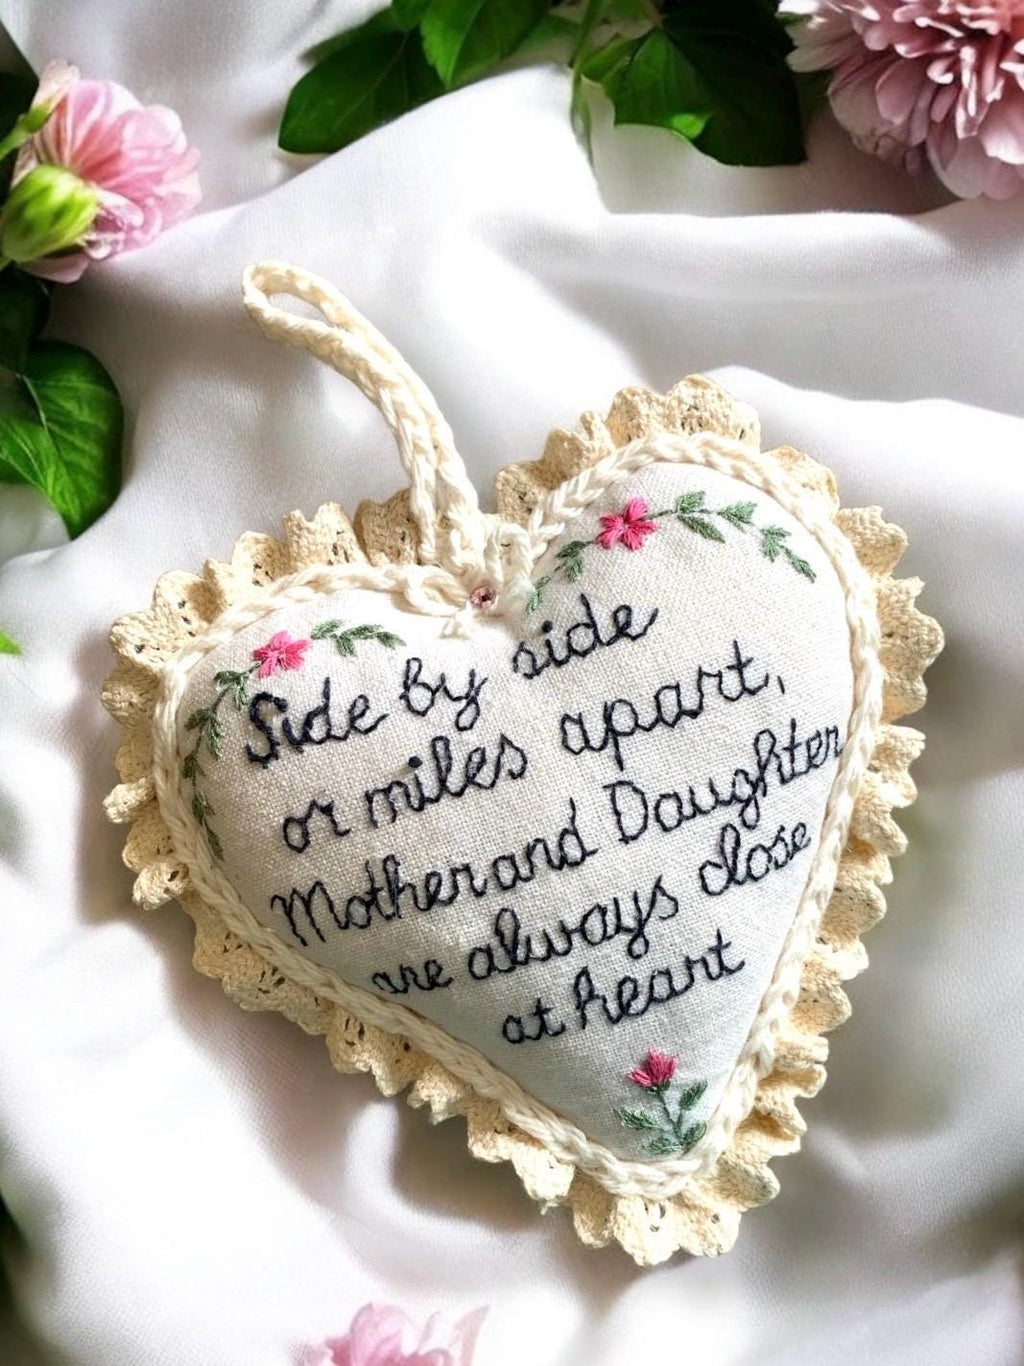 Side by side
or miles apart,
Mother and Daughter
are always close
at heart